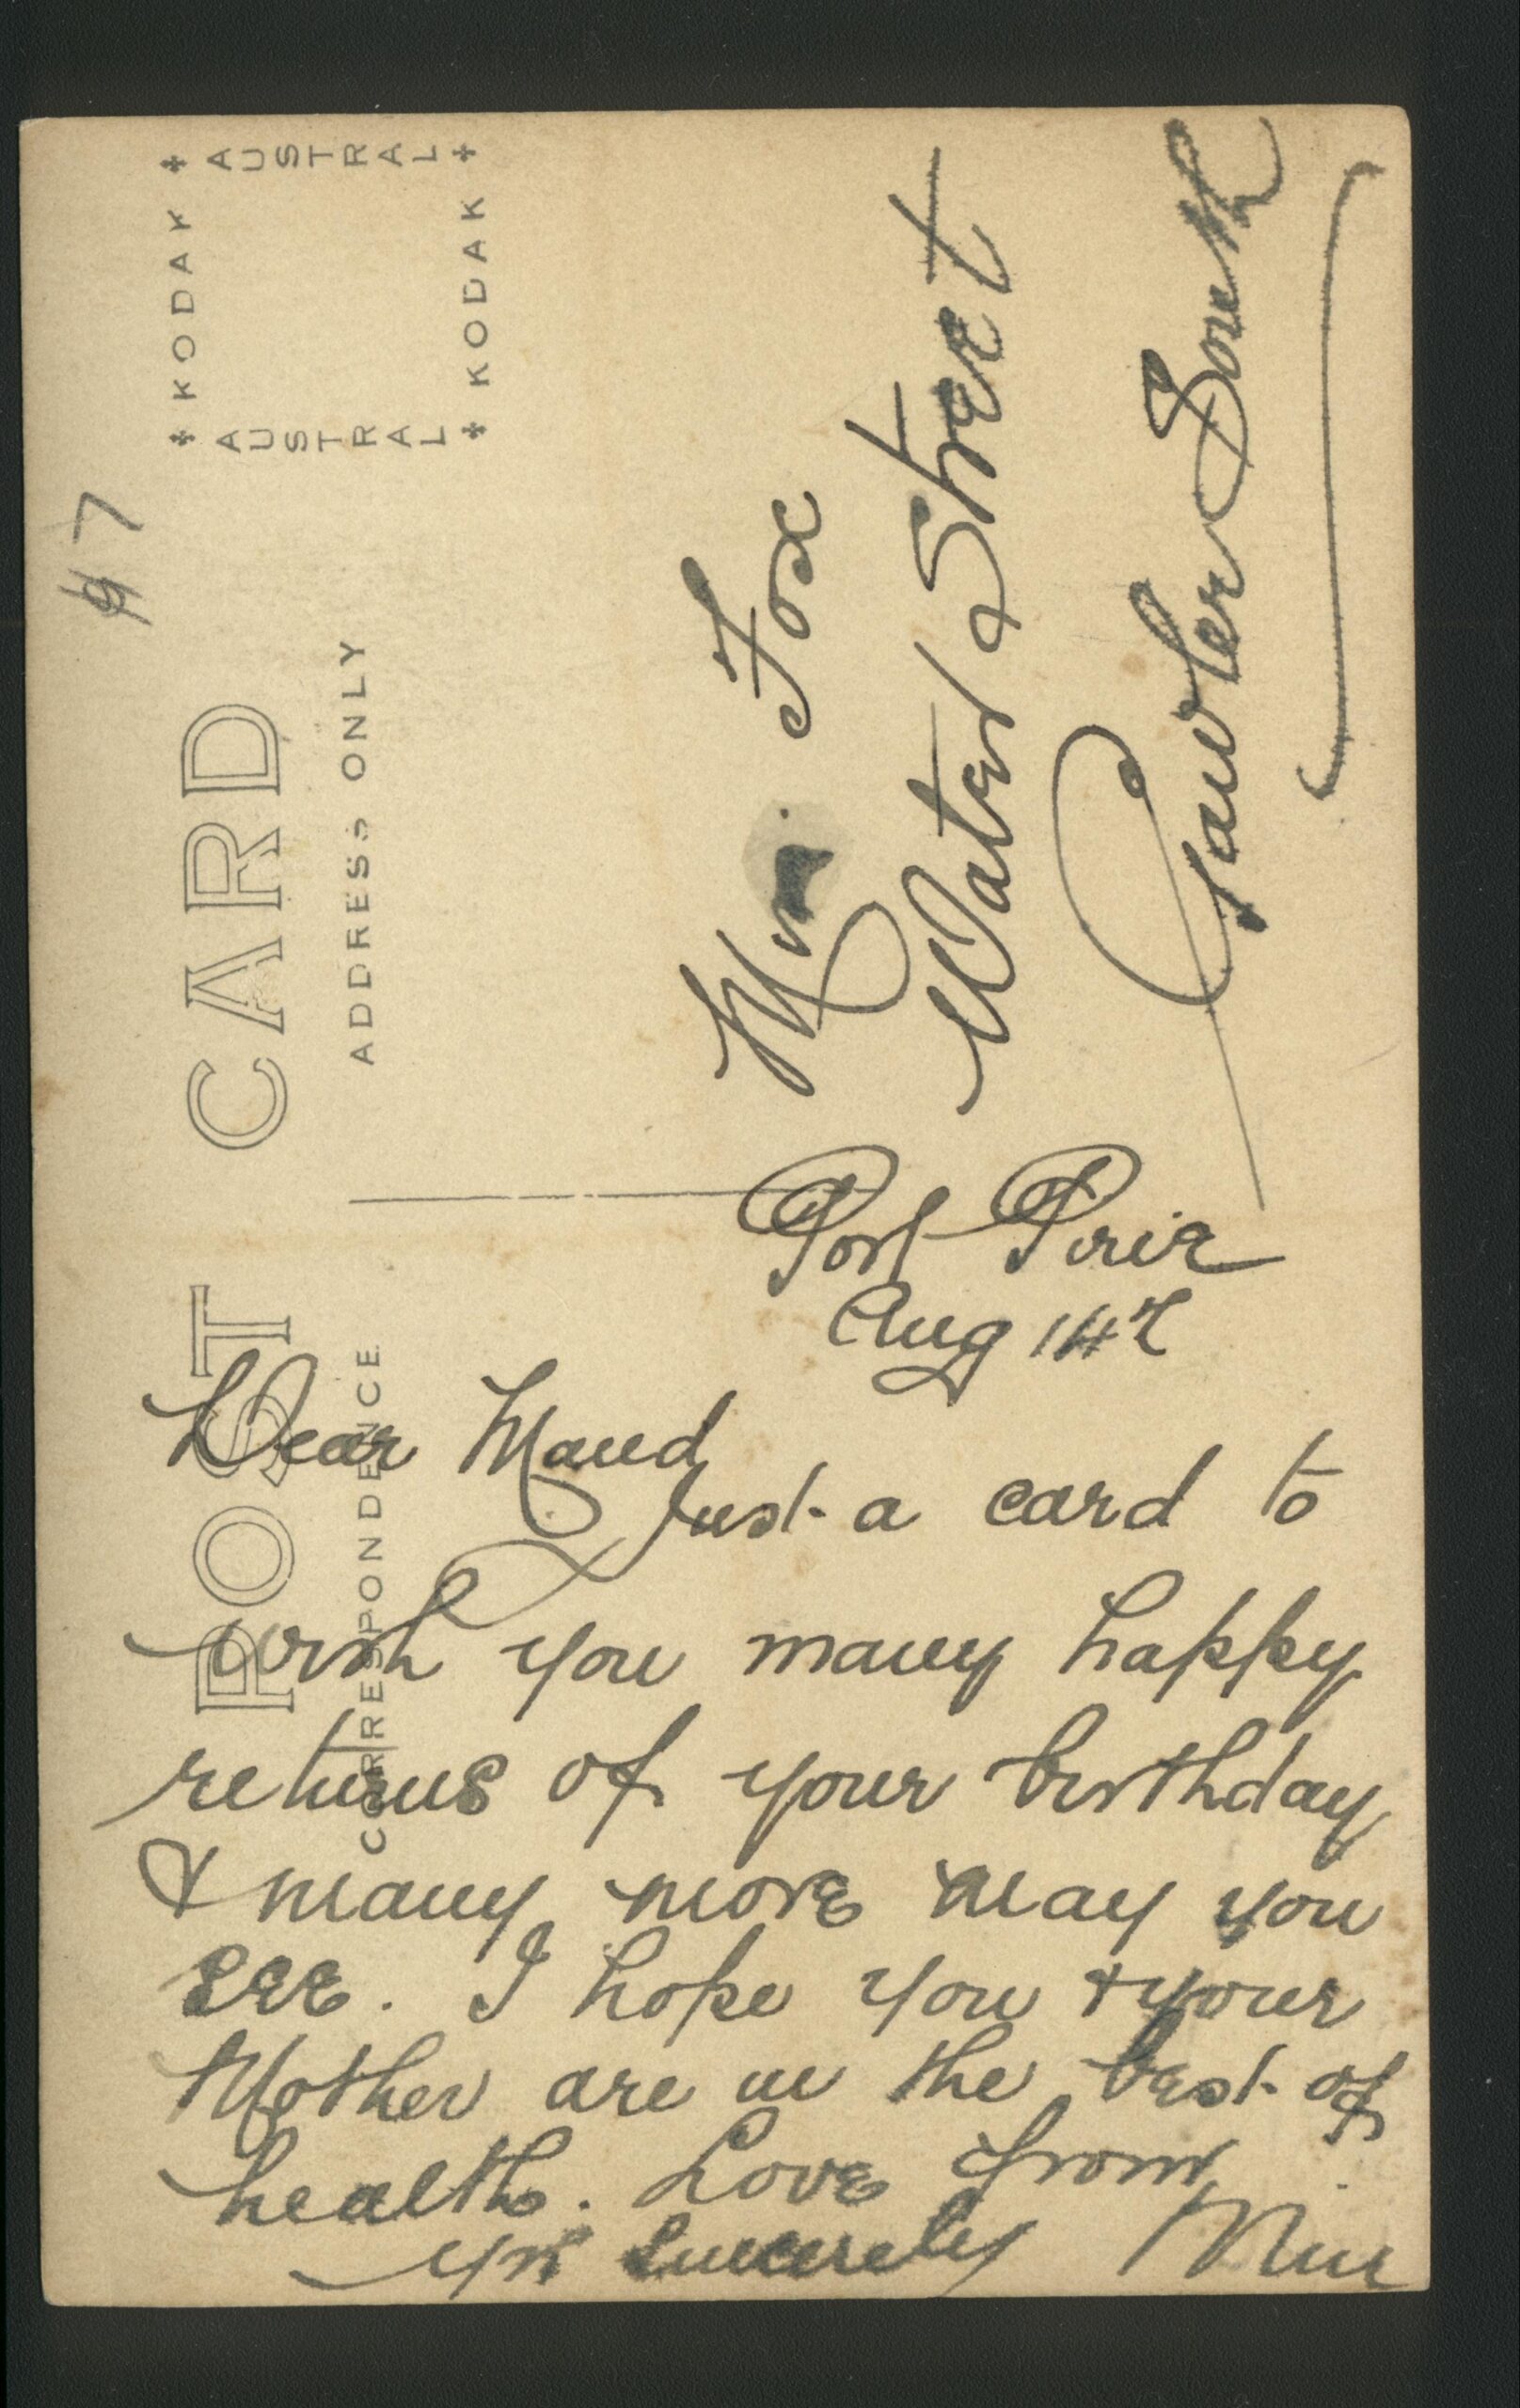 POST CARD
CORRESPONDENCE
ADDRESS ONLY
KODAK
AUSTRAL
KODAK
AUSTRAL
47
Fox
Water Street
Gawler South
Port Pirie
Aug 14th
Dear Maud
Just a card to
wish you many happy
returns of your birthday
& many more may you
see. I hope you & your
Mother are in the best of
health. Love from
yrs sincerely